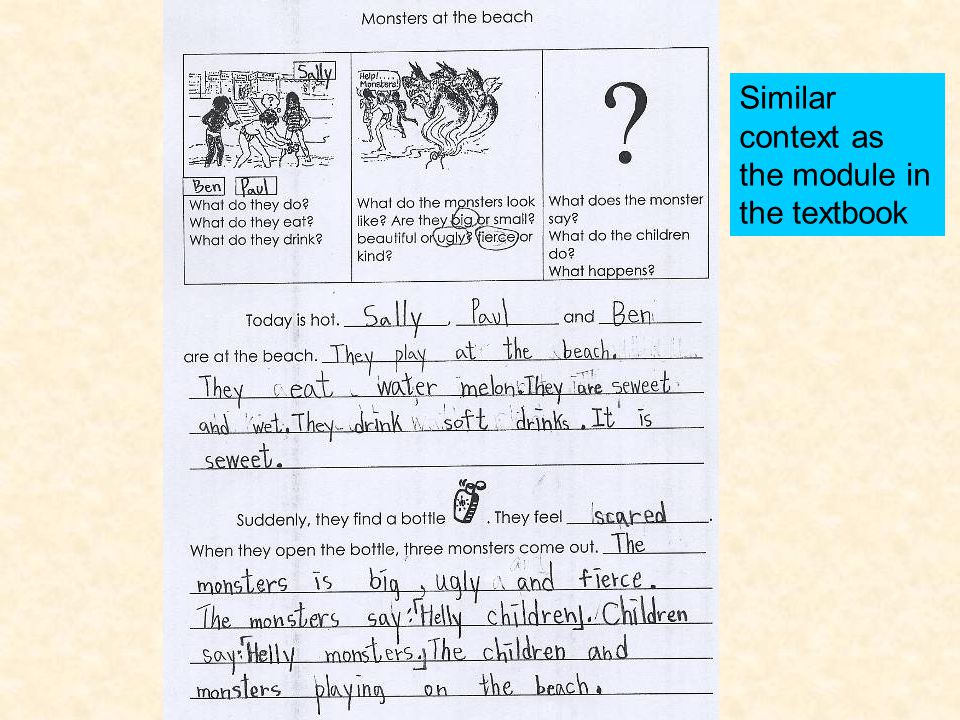 Monsters at the beach
Sally
Ben Paul
What do they do?
What do they eat?
What do they drink?
Help!....
Monsters!
What do the monsters look
like? Are they big or small?
beautiful or ugly? fierce or
kind?
?
What does the monster
say?
What do the children
do?
What happens?
Similar
context as
the module in
the textbook
Today is hot. Sally, Paul and Ben
are at the beach. They play at the beach.
They eat water melon. They are seweet
and wet. They drink soft drinks. It is
seweet.
Suddenly, they find a bottle . They feel scared.
When they open the bottle, three monsters come out. The
monsters is big, ugly and fierce.
The monsters say:「Helly children」. Children
say:「Helly monsters.」The children and
monsters playing on the beach.